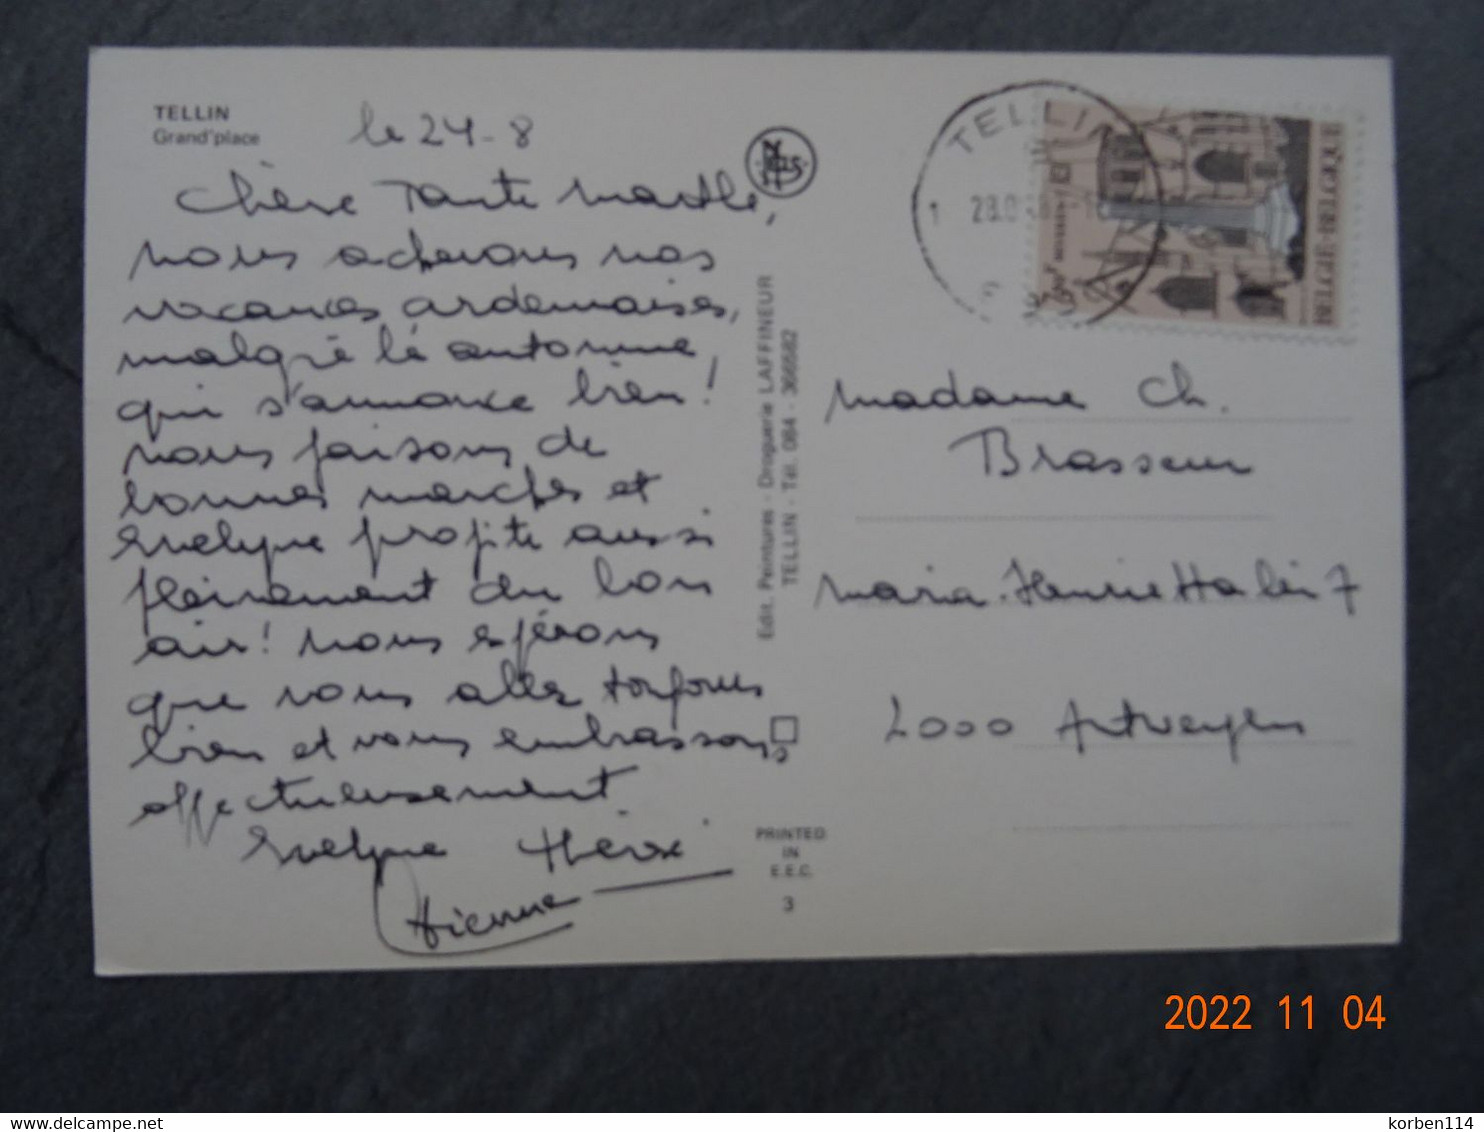 TELLIN
Grand'place
le 24-8
Chère Tante Marthe,
nous achevons nos
vacances ardennaises,
malgré le automne
qui s'annonce bien!
nous faisons de
bonnes marches et
Evelyne profite aussi
pleinement du bon
air! nous espérons
que vous allez toujours
bien et vous embrassons
affectueusement.
Evelyne Hervé
Etienne
Edit. Peintures - Droguerie LAFFINEUR
TELLIN - Tél. 084 - 366582
PRINTED
IN
E.E.C.
3
TELLIN
1
BELGIE-BELGIQUE
Madame Ch.
Brasseur
Maria-Henriettalei 7
2000 Antwerpen
2022 11 04
korben114